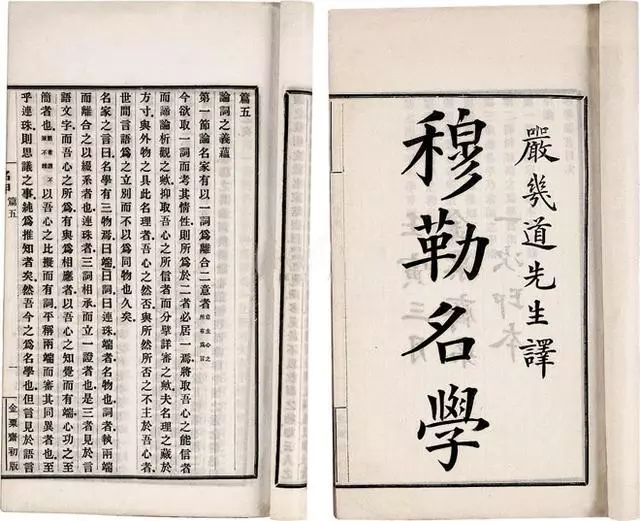 嚴幾道先生譯
穆勒名學
篇五
論詞之義蘊
第一節論名家有以一詞爲離合二意者
今欲取一詞而考其情性則所爲於二者必居一焉將取吾心之能信者
而諦論析觀歟抑取吾心之所信者而分擘詳審之歟夫名理之藏於
方寸與外物之具此名理者吾心之然否與所然所否之不主於吾心者
世間言語爲之立別而不以爲同物也久矣
名家之言曰名學有三物焉曰端曰詞曰連珠端者名物也詞者執兩端
而離合之以綴系者也連珠者三詞相承而立一證者也是三者見於言
語文字而吾心之所爲有與爲相應者以吾心之知覺而有端心功之至
簡者也以吾心之比擬而有詞平稱兩端而審其同異者也至
乎連珠則思議之事純爲推知者矣然吾今之爲名學也但言見於語言
篇五
一
金粟齋初版